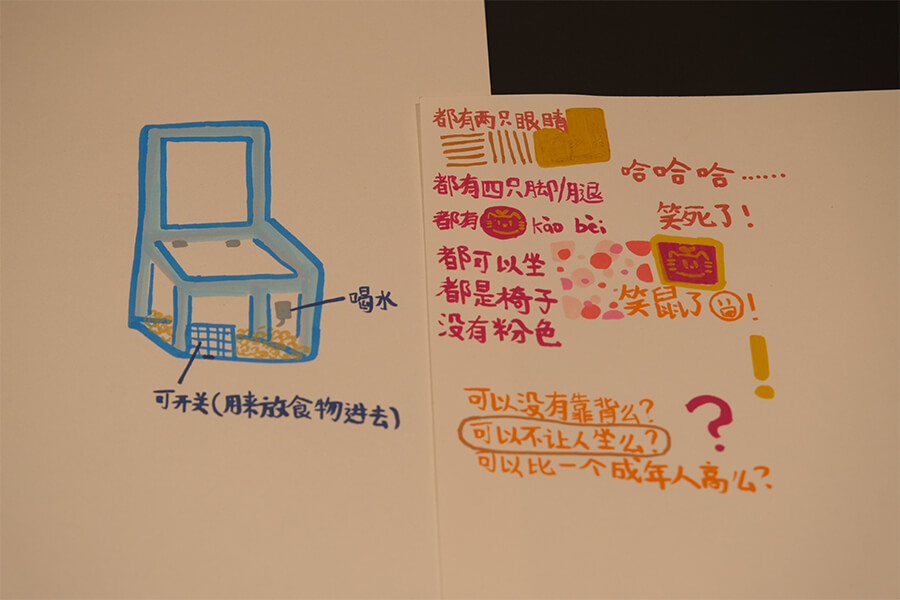 喝水
可开关(用来放食物进去)
都有两只眼睛
都有四只脚/腿
都有 kào bèi
都可以坐
都是椅子
没有粉色
哈哈哈……
笑死了!
笑鼠了!
!
?
可以没有靠背么?
可以不让人坐么?
可以比一个成年人高么?